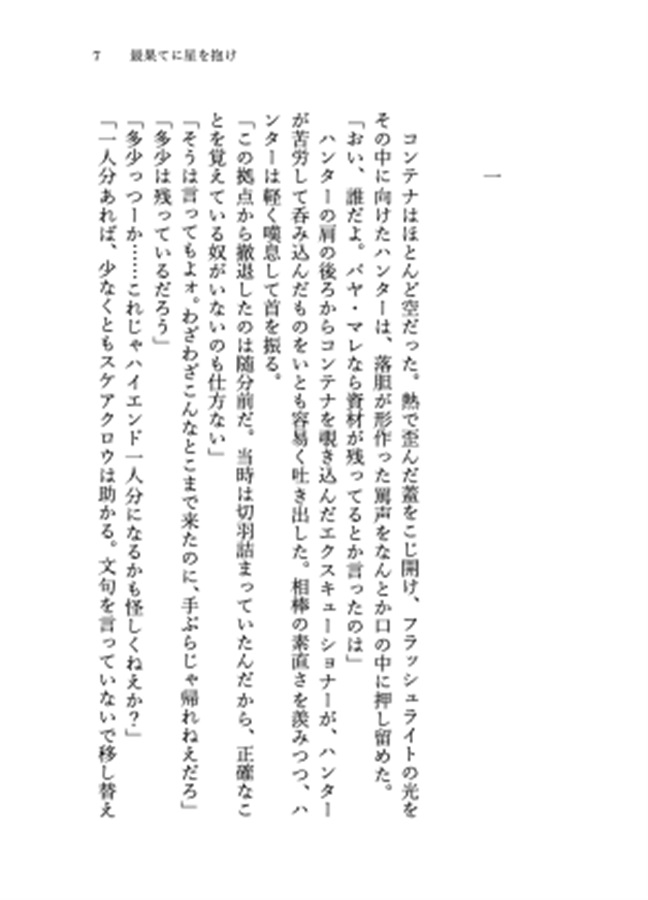 7 最果てに星を抱け
一
コンテナはほとんど空だった。熱で歪んだ蓋をこじ開け、フラッシュライトの光を
その中に向けたハンターは、落胆が形作った罵声をなんとか口の中に押し留めた。
「おい、誰だよ。バヤ・マレなら資材が残ってるとか言ったのは」
ハンターの肩の後ろからコンテナを覗き込んだエクスキューショナーが、ハンター
が苦労して呑み込んだものをいとも容易く吐き出した。相棒の素直さを羨みつつ、ハ
ンターは軽く嘆息して首を振る。
「この拠点から撤退したのは随分前だ。当時は切羽詰まっていたんだから、正確なこ
とを覚えている奴がいないのも仕方ない」
「そうは言ってもよォ。わざわざこんなとこまで来たのに、手ぶらじゃ帰れねえだろ」
「多少は残っているだろう」
「多少っつーか……これじゃハイエンド一人分になるかも怪しくねえか？」
「一人分あれば、少なくともスケアクロウは助かる。文句を言っていないで移し替え